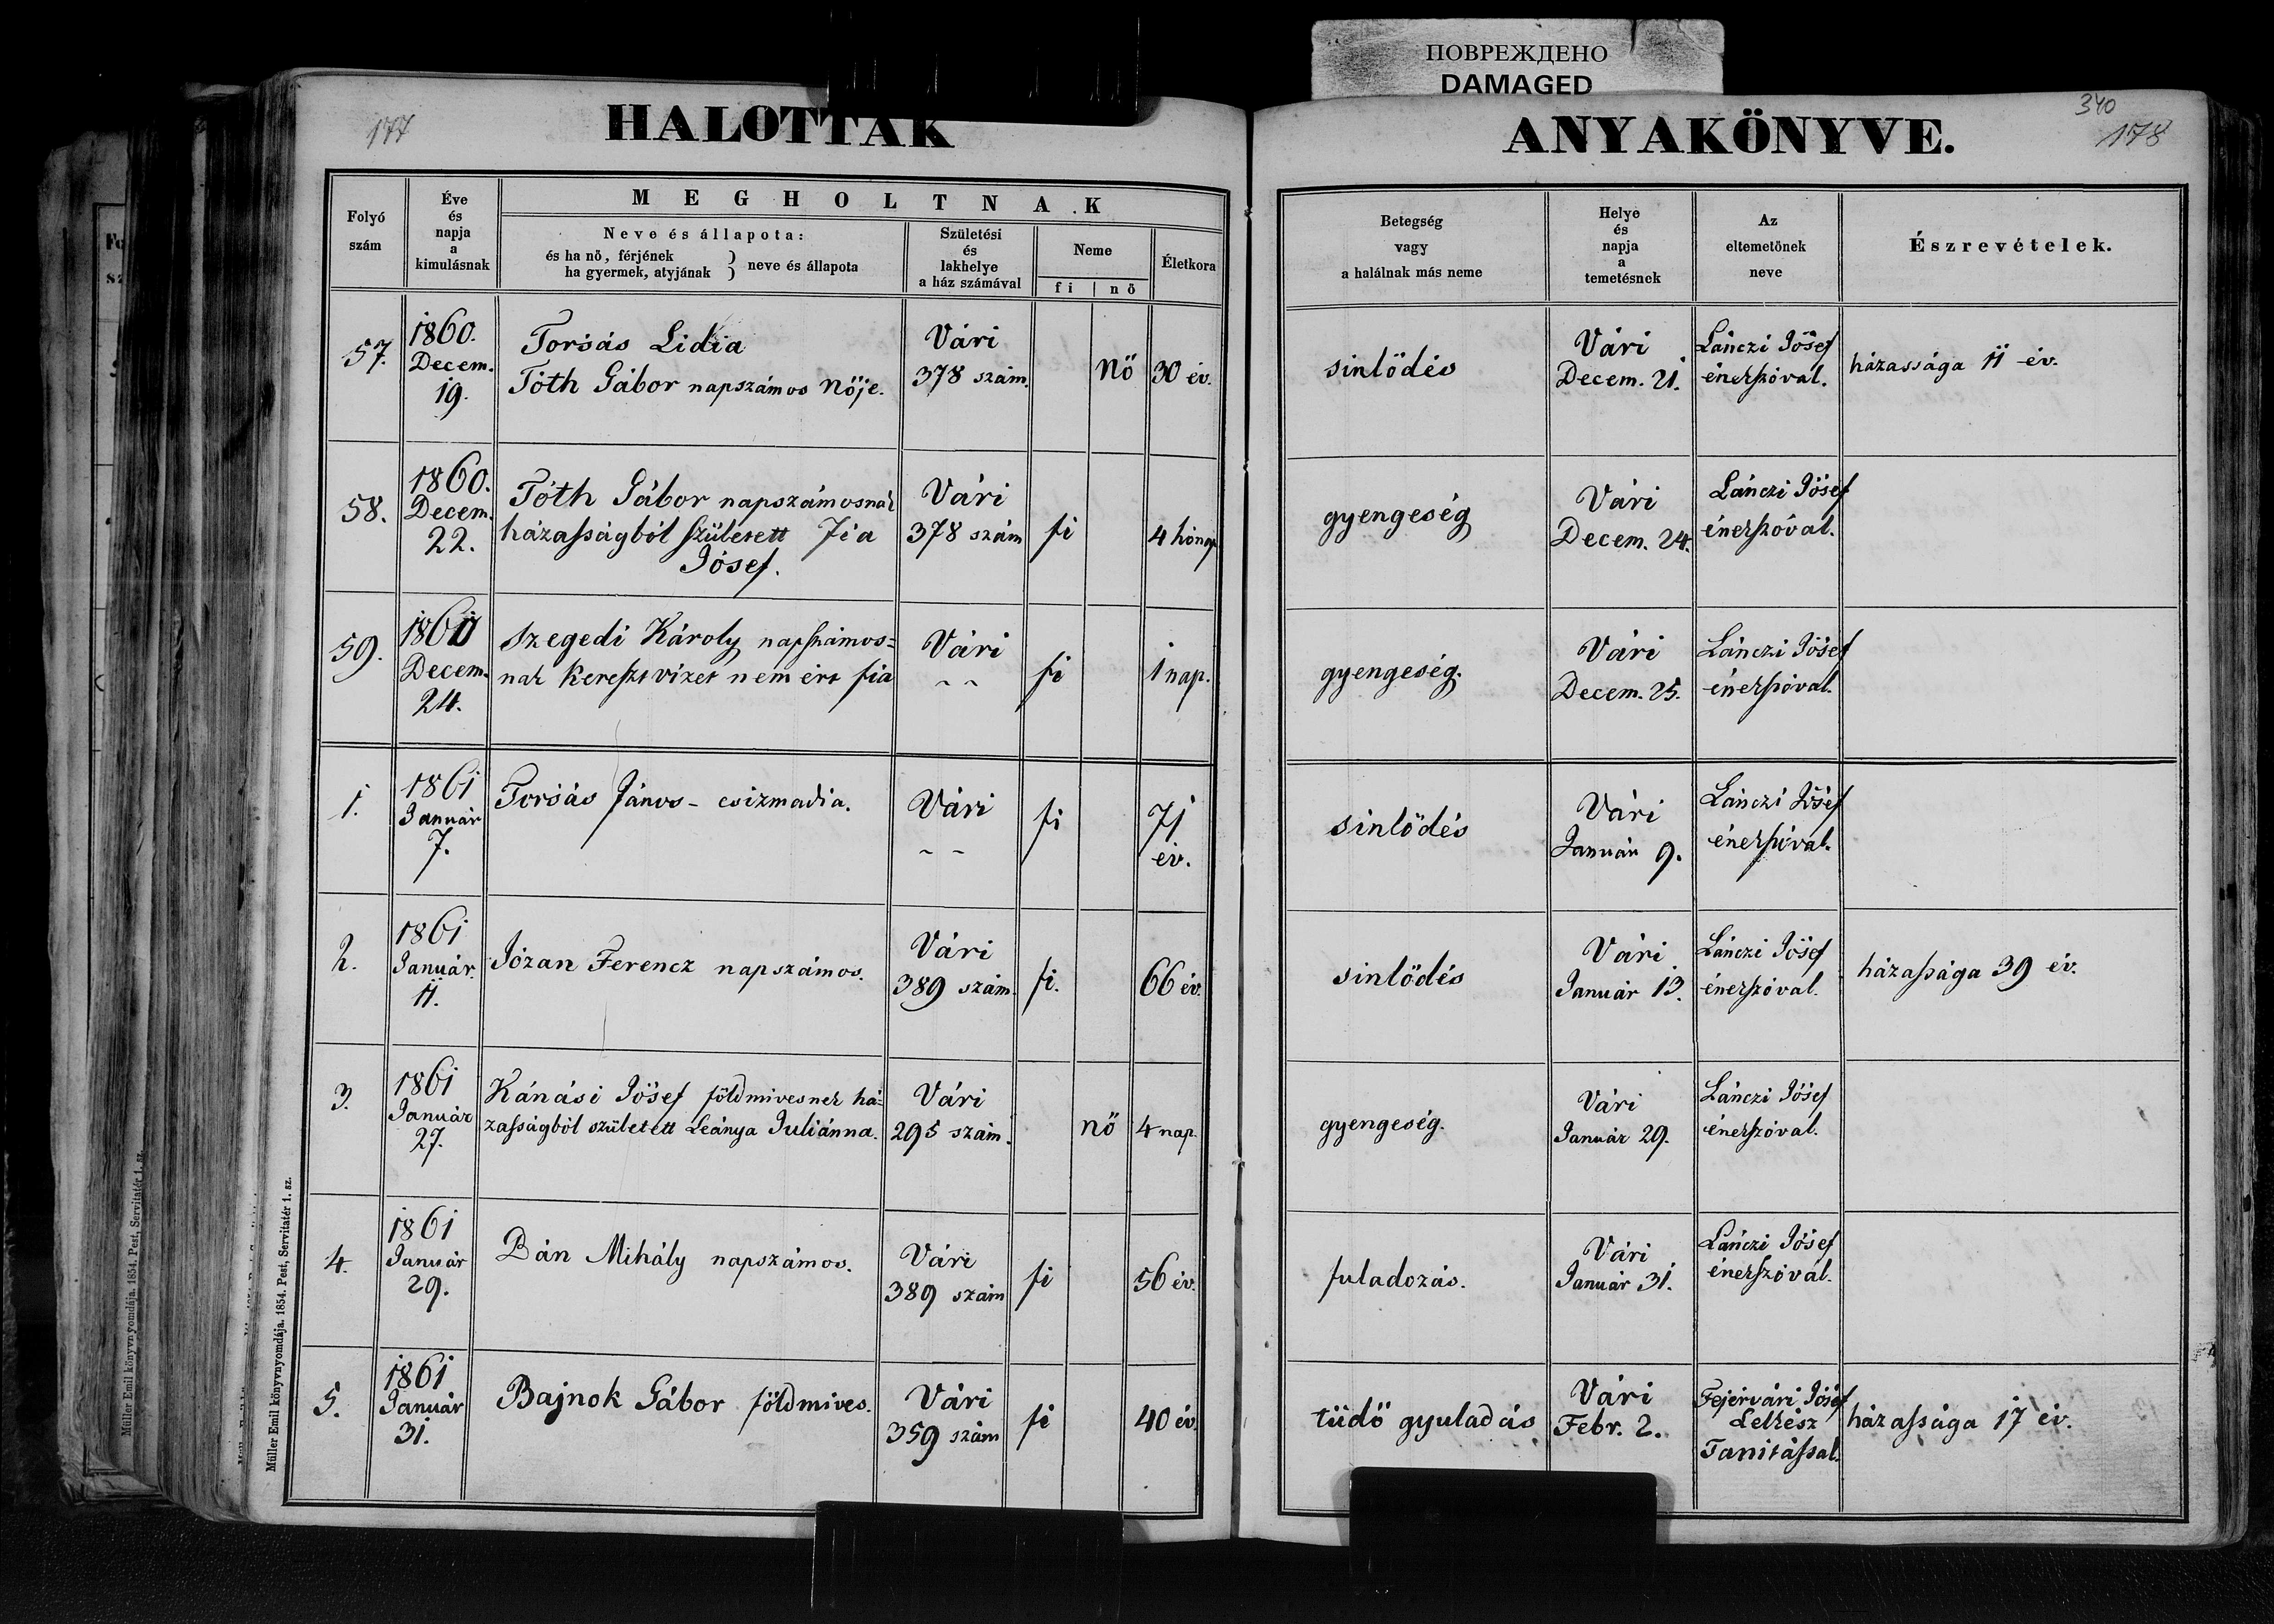 ПОВРЕЖДЕНО
DAMAGED
177
HALOTTAK
ANYAKÖNYVE.
340
178
Folyó
szám
Éve
és
napja
a
kimulásnak
MEGHOLTNAK
Neve és állapota:
és ha nő, férjének
ha gyermek, atyjának
} neve és állapota
Születési
és
lakhelye
a ház számával
Neme
fi | nő
Életkora
Betegség
vagy
a halálnak más neme
Helye
és
napja
a
temetésnek
Az
eltemetőnek
neve
Észrevételek.
57.
1860.
Decem.
19.
Torsás Lidia
Tóth Gábor napszámos Nője.
Vári
378 szám.
Nő
30 év.
sinlődés
Vári
Decem. 21.
Lánczi Jósef
énekszóval.
házassága 11 év.
58.
1860.
Decem.
22.
Tóth Gábor napszámosnak
házasságból született Fia
Jósef.
Vári
378 szám
fi
4 hónap
gyengeség
Vári
Decem. 24.
Lánczi Jósef
énekszóval.
59.
1860
Decem.
24.
Szegedi Károly napszámos=
nak keresztvizet nem ért fia
Vári
~ ~
fi
1 nap.
gyengeség.
Vári
Decem. 25.
Lánczi Jósef
énekszóval.
1.
1861
Január
7.
Torsás János - csizmadia.
Vári
~ ~
fi
71
év.
sinlődés
Vári
Január 9.
Lánczi Jósef
énekszóval.
2.
1861
Január.
11.
Józan Ferencz napszámos.
Vári
389 szám.
fi.
66 év.
sinlődés
Vári
Január 13.
Lánczi Jósef
énekszóval.
házassága 39 év.
3.
1861
Január
27.
Kánási Jósef földmivesnek há=
zasságból született Leánya Juliánna.
Vári
295 szám.
nő
4 nap.
gyengeség.
Vári
Január 29.
Lánczi Jósef
énekszóval.
4.
1861
Január
29.
Bán Mihály napszámos.
Vári
389 szám
fi
56 év.
fuladozás.
Vári
Január 31.
Lánczi Jósef
énekszóval.
5.
1861
Január
31.
Bajnok Gábor földmives.
Vári
359 szám
fi
40 év.
tüdő gyuladás
Vári
Febr. 2.
Fejérvári Jósef
Lelkész
Tanitással.
házassága 17 év.
Müller Emil könyvnyomdája. 1854. Pest, Servitatér 1. sz.
Müller Emil könyvnyomdája. 1854. Pest, Servitatér 1. sz.